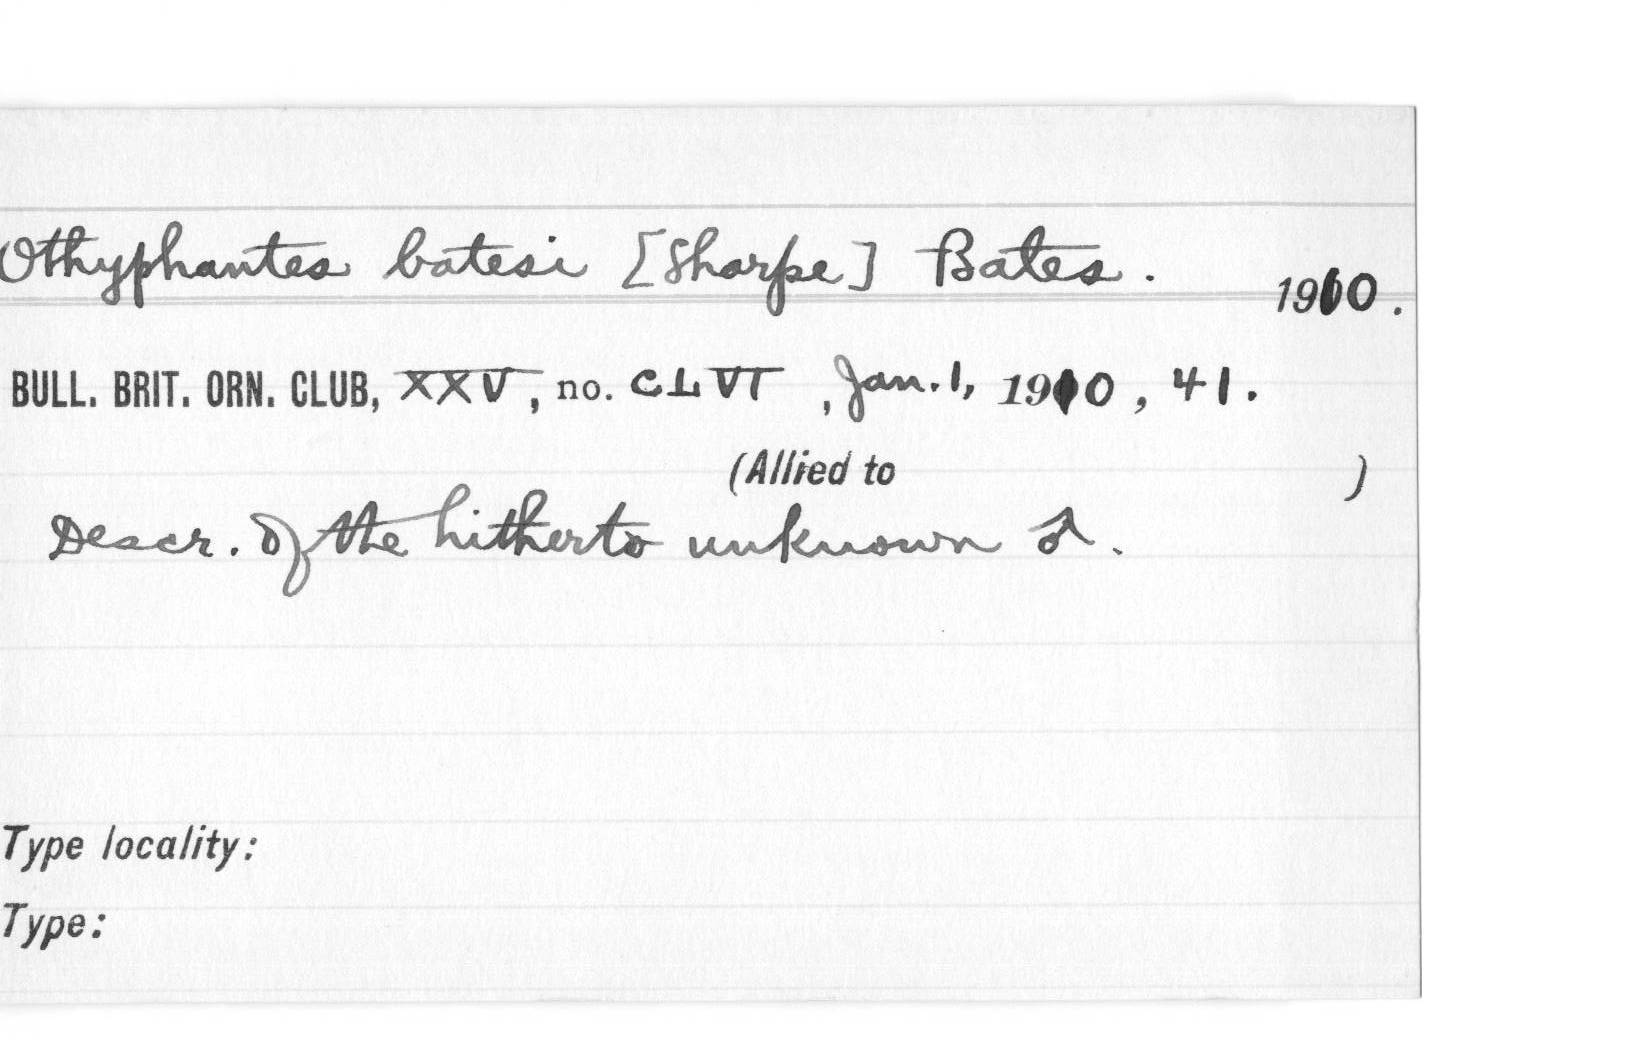 Othyphantes batesi [Sharpe] Bates. 1910.
BULL. BRIT. ORN. CLUB, XXV, no. CLVI, Jan. 1, 1910, 41.
(Allied to )
Descr. of the hitherto unknown ♂.
Type locality:
Type: